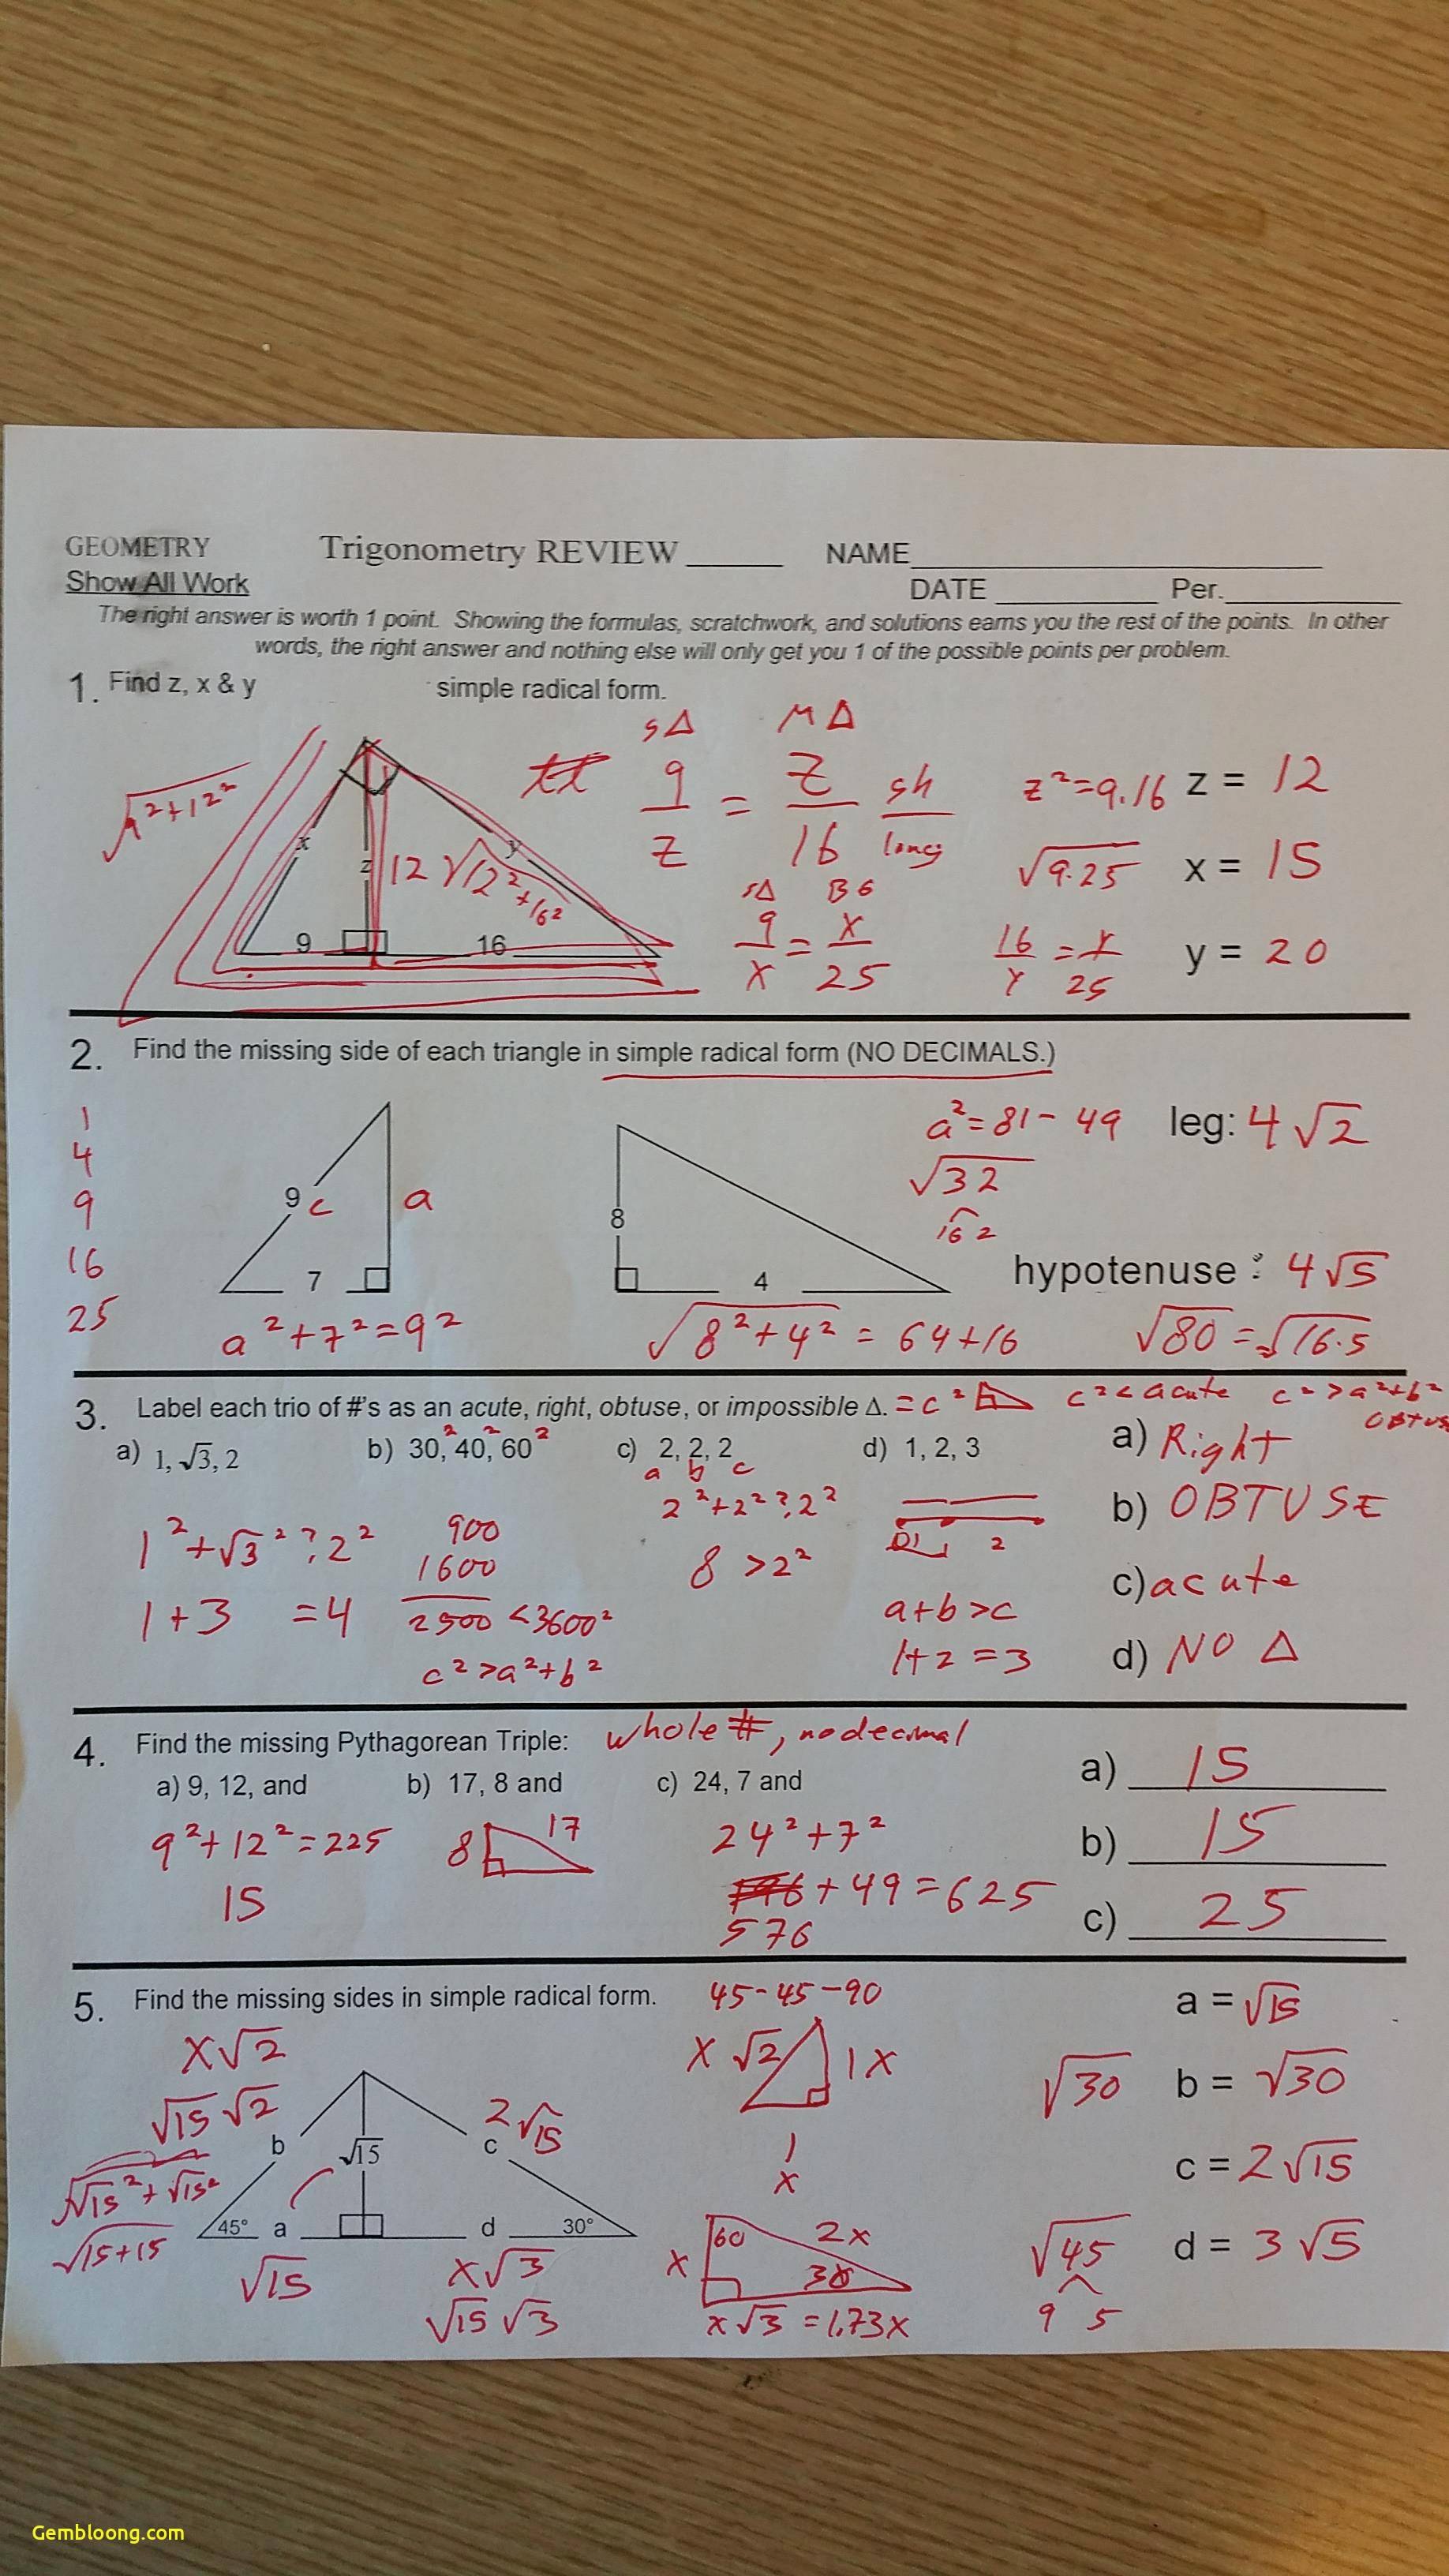 GEOMETRY Trigonometry REVIEW ______ NAME______
Show All Work DATE ______ Per.______
The right answer is worth 1 point. Showing the formulas, scratchwork, and solutions earns you the rest of the points. In other
words, the right answer and nothing else will only get you 1 of the possible points per problem.
1. Find z, x & y simple radical form.
s△ M△
9/z = z/16 sh/long
z²=9.16 z = 12
√9²+12²
x z 12 √12²+16² y
9 16
√9.25 x = 15
s△ BG
9/x = x/25
16/y = y/25 y = 20
2. Find the missing side of each triangle in simple radical form (NO DECIMALS.)
1
4
9
16
25
9 c a
7
a²+7²=9²
8
4
√8²+4² = 64+16
a²=81-49 leg: 4√2
√32
16 2
hypotenuse : 4√5
√80 = √16.5
3. Label each trio of #'s as an acute, right, obtuse, or impossible Δ. = c² c²< acute c²>a²+b²
OBTUS
a) 1, √3, 2 b) 30², 40², 60² c) 2, 2, 2 d) 1, 2, 3
a b c
1²+√3² ? 2²
1+3 =4
900
1600
2500 <3600²
c²>a²+b²
2²+2²?2²
8 >2²
2
a+b>c
1+2=3
a) Right
b) OBTUSE
c) acute
d) NO △
4. Find the missing Pythagorean Triple: whole #, no decimal
a) 9, 12, and b) 17, 8 and c) 24, 7 and
9²+12²=225
15
8 17
24²+7²
196 +49=625
576
a) 15
b) 15
c) 25
5. Find the missing sides in simple radical form. 45-45-90
x√2
√15√2
√√15²+√15²
√15+15
b √15 c 2√15
45° a d 30°
√15
x√3
√15√3
x√2 1x
1
x
60 2x
x 30
x√3=1.73x
a = √15
√30 b = √30
c = 2√15
√45 d = 3√5
9 5
Gembloong.com